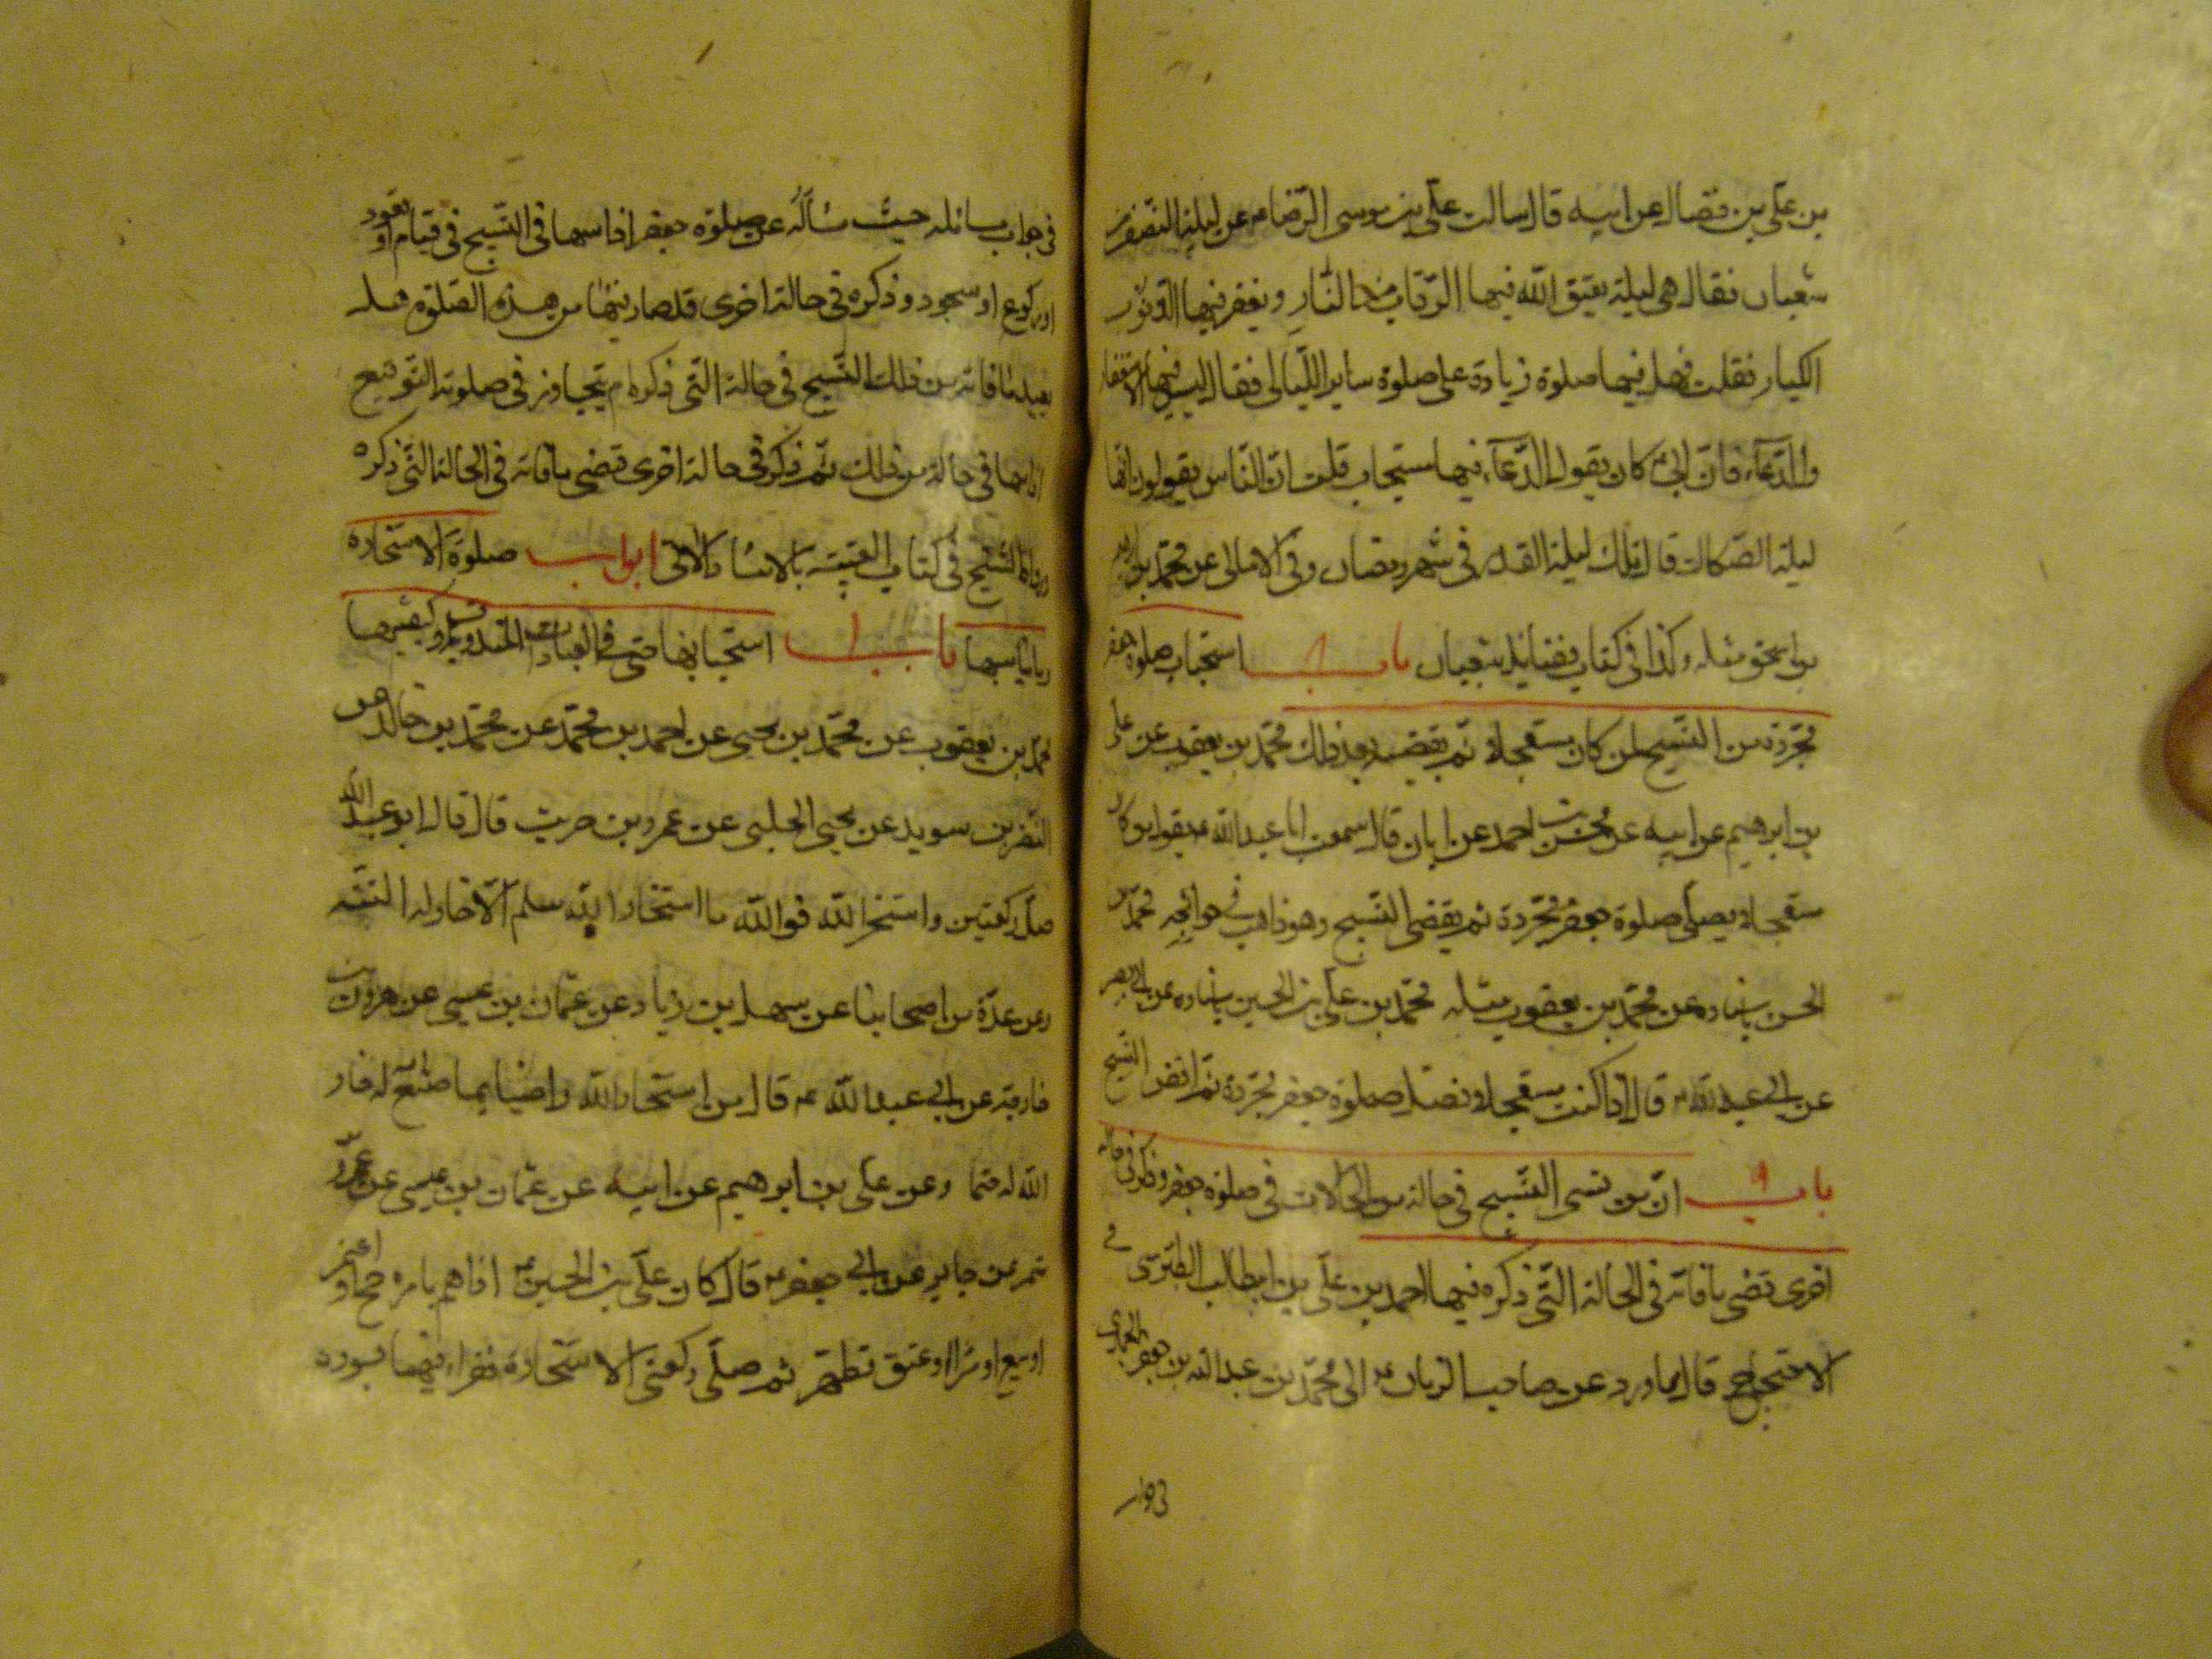 بن علي بن فضال عن ابيه قال سالت علي بن موسى الرضا عن ليلة النصف من
شعبان فقال هى ليلة يعتق الله فيها الرقاب من النار و يغفر فيها الذنوب
الكبار فقلت فهل فيها صلوة زيادة على صلوة ساير الليالى فقال ليس فيها
والدعاء فان ابى كان يقول الدعاء فيها مستجاب قلت ان الناس يقولون انها
ليلة الصكاك قال تلك ليلة القدر فى شهر رمضان وفى الامالى عن محمد بن
بن اسحق مثله وكذا فى كتاب فضائل شعبان باب ٨ استحباب صلوة جعفر
مجردة من التسبيح لمن كان مستعجلا ثم يقضيه بعد ذلك محمد بن يعقوب عن على
بن ابرهيم عن ابيه عن محسن بن احمد عن ابان قال سمعت ابا عبد الله يقول من كان
مستعجلا يصلى صلوة جعفر مجردة ثم يقضى التسبيح وهو ذاهب فى حوائجه محمد بن
الحسن باسناده عن محمد بن يعقوب مثله محمد بن على بن الحسين باسناده عن ابى بصير
عن ابى عبد الله قال اذا كنت مستعجلا فصل صلوة جعفر مجردة ثم اقض التسبيح
باب ٩ ان من نسى التسبيح فى حالة من الحالات فى صلوة جعفر وذكر فى حالة
اخرى قضى ما فاته فى الحالة التى ذكره فيها احمد بن على بن ابيطالب الطبرسى فى
الاحتجاج قال مما ورد عن صاحب الزمان الى محمد بن عبد الله بن جعفر الحميرى
فى جواب
فى جواب مسائله حيث سأله عن صلوة جعفر اذا سها فى التسبيح فى قيام او قعود
او ركوع او سجود وذكره فى حالة اخرى قد صار فيها من هذه الصلوة هل
يعيد ما فاته من ذلك التسبيح فى حالة التى ذكره ام يتجاوز فى صلوته التوقيع
اذا سها فى حالة من ذلك ثم ذكر فى حالة اخرى قضى ما فاته فى الحالة التى ذكره
ورواه الشيخ فى كتاب الغيبة بالاسناد الاتى ابواب صلوة الاستخارة
وما يناسبها باب ١ استحبابها حتى فى العبادات المندوبات وكيفيتها
محمد بن يعقوب عن محمد بن يحيى عن احمد بن محمد عن محمد بن خالد عن
النضر بن سويد عن يحيى الحلبى عن عمرو بن حريث قال قال ابو عبد الله
صل ركعتين واستخر الله فو الله ما استخار الله مسلم الا خار له البتة
وعن عدة من اصحابنا عن سهل بن زياد عن عثمان بن عيسى عن هرون بن
خارجة عن ابى عبد الله قال من استخار الله راضيا بما صنع له خار
الله له حتما وعن على بن ابرهيم عن ابيه عن عثمان بن عيسى عن عمرو بن
شمر عن جابر عن ابى جعفر قال كان على بن الحسين اذا هم بامره حج او عمرة
او بيع او شراء او عتق تطهر ثم صلى ركعتى الاستخارة فقراء فيهما بسورة